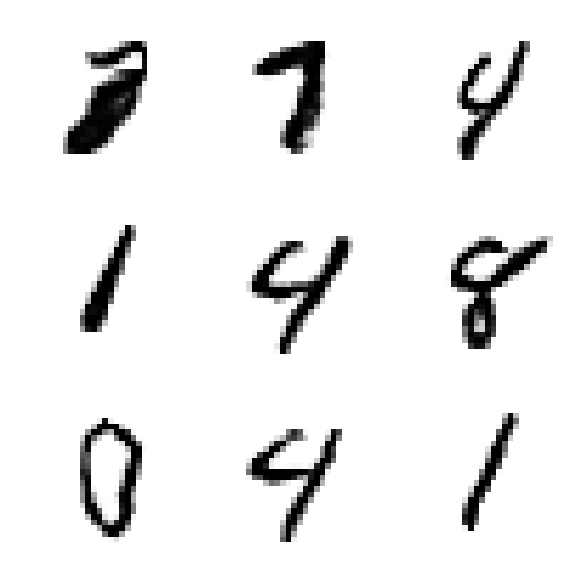 7 7 4
1 4 8
0 4 1